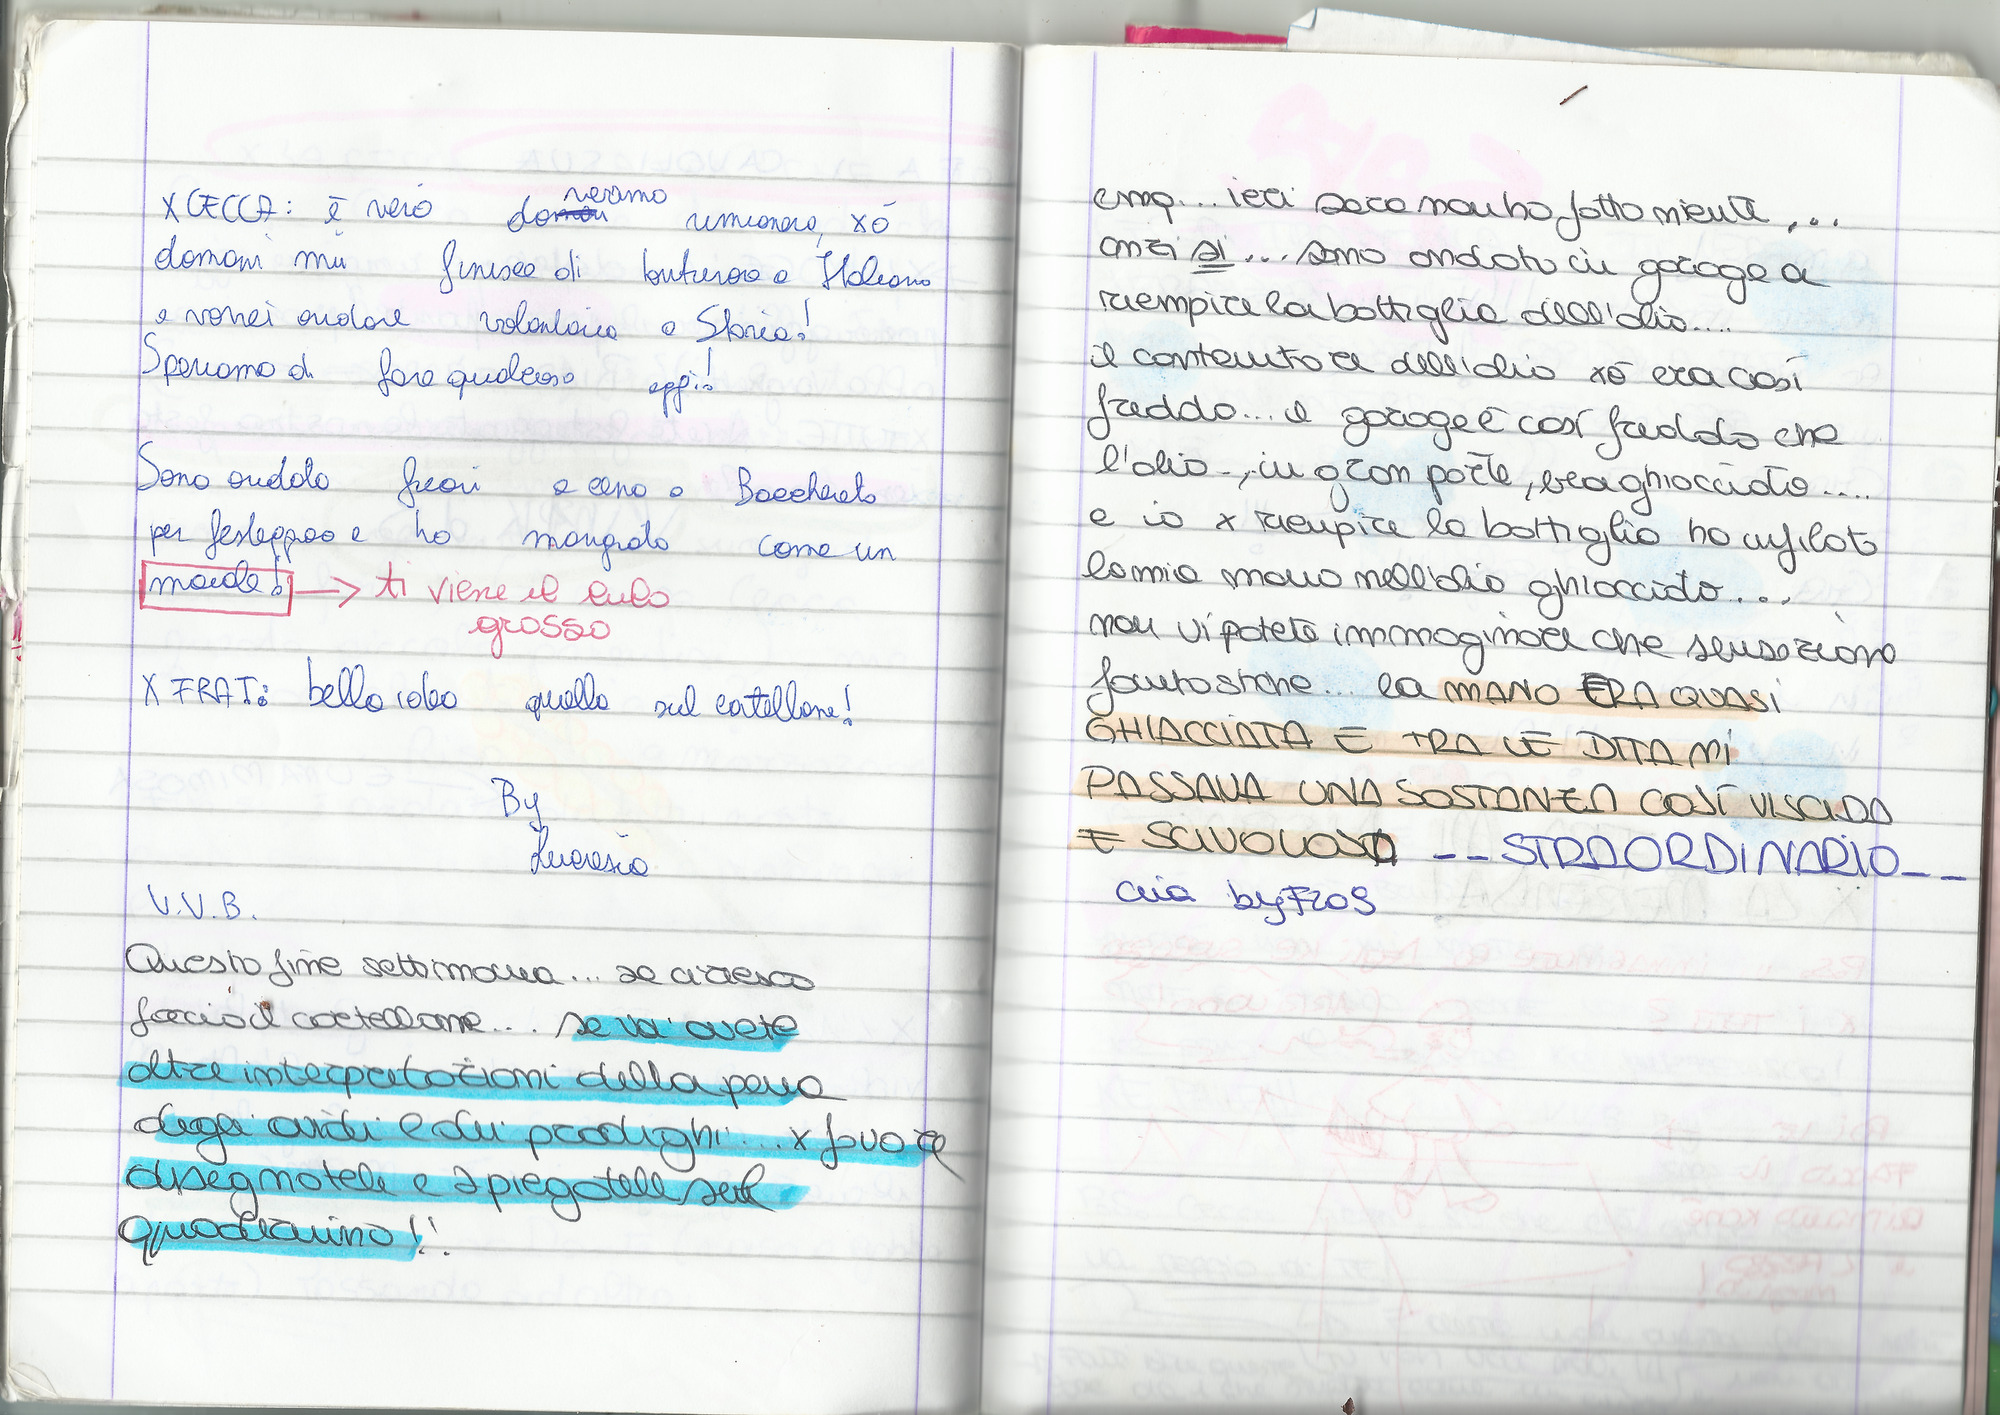 X CECCA: è vero do veramo rimanere, xò
domani mi finisce di torturare a Italiano
e vorrei andare volontario a Storia!
Speriamo di fare qualcosa oggi!
Sono andato fuori a cena a Bacchereto
per festeggiare e ho mangiato come un
maiale! → ti viene il culo
grosso
X FRAT: bella idea quella sul cartellone!
By
Lucrezia
V.V.B.
Questo fine settimana... se ci riesco
faccio il cartellone... se voi avete
altre interpretazioni della pena
degli avidi e dei prodighi... x favore
disegnatele e spiegatele sul
quadernino!!
cmq... ieri sera non ho fatto niente,...
anzi si... sono andato in garage a
riempire la bottiglia dell'olio....
il contenitore dell'olio xò era così
freddo... il garage è così freddo che
l'olio, in gran parte, era ghiacciato....
e io x riempire la bottiglia ho infilato
la mia mano nell'olio ghiacciato...
non vi potete immaginare che sensazione
fantastiche... la MANO ERA QUASI
GHIACCIATA E TRA LE DITA MI
PASSAVA UNA SOSTANZA COSÌ VISCIDA
E SCIVOLOSA -- STRAORDINARIO --
ciia by FROS